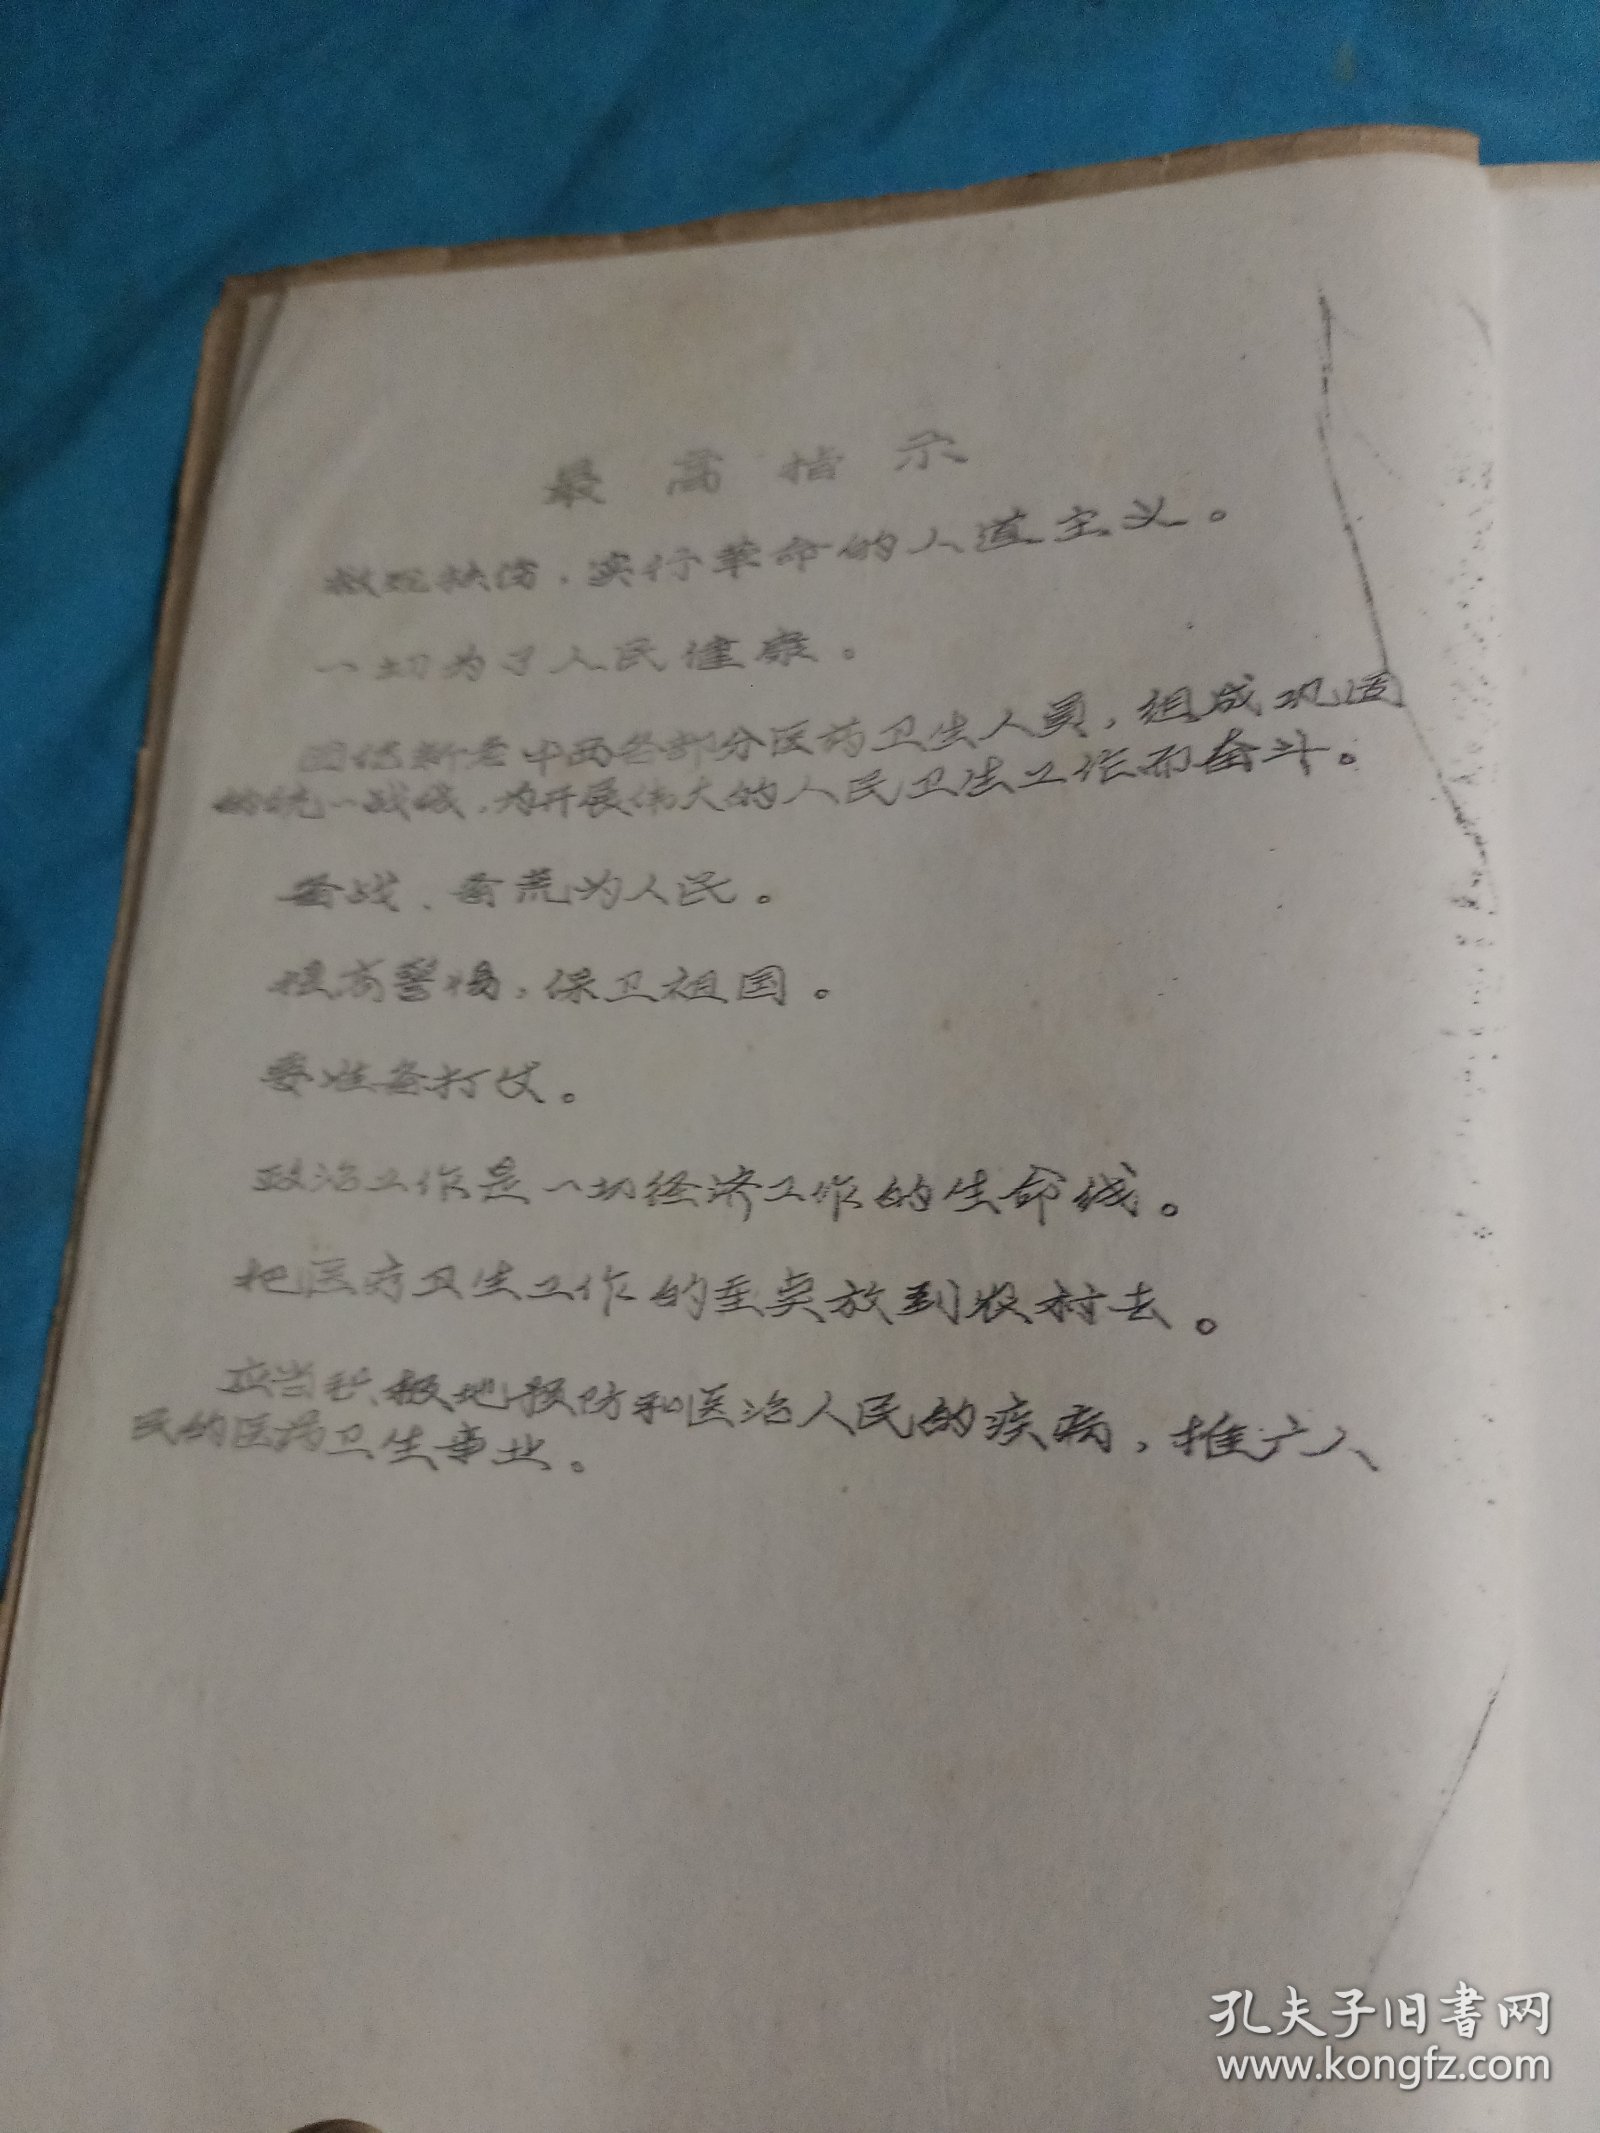 最高指示
救死扶伤，实行革命的人道主义。
一切为了人民健康。
团结新老中西各部分医药卫生人员，组成巩固
的统一战线，为开展伟大的人民卫生工作而奋斗。
备战、备荒为人民。
提高警惕，保卫祖国。
要准备打仗。
政治工作是一切经济工作的生命线。
把医疗卫生工作的重点放到农村去。
应当积极地预防和医治人民的疾病，推广人
民的医药卫生事业。
孔夫子旧书网
www.kongfz.com